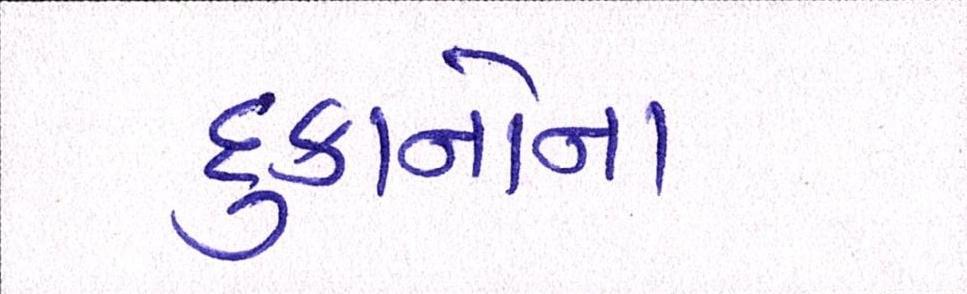 દુકાનોના